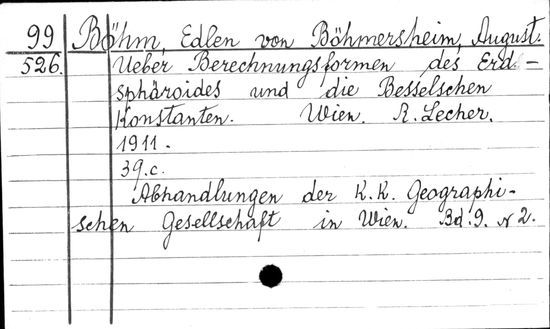 99 Böhm, Edlen von Böhmersheim, August.
526. Ueber Berechnungsformen des Erd-
sphäroides und die Besselschen
Konstanten. Wien. R. Lecher.
1911.
39.c.
Abhandlungen der K.K. Geographi-
schen Gesellschaft in Wien. Bd. 9. N 2.